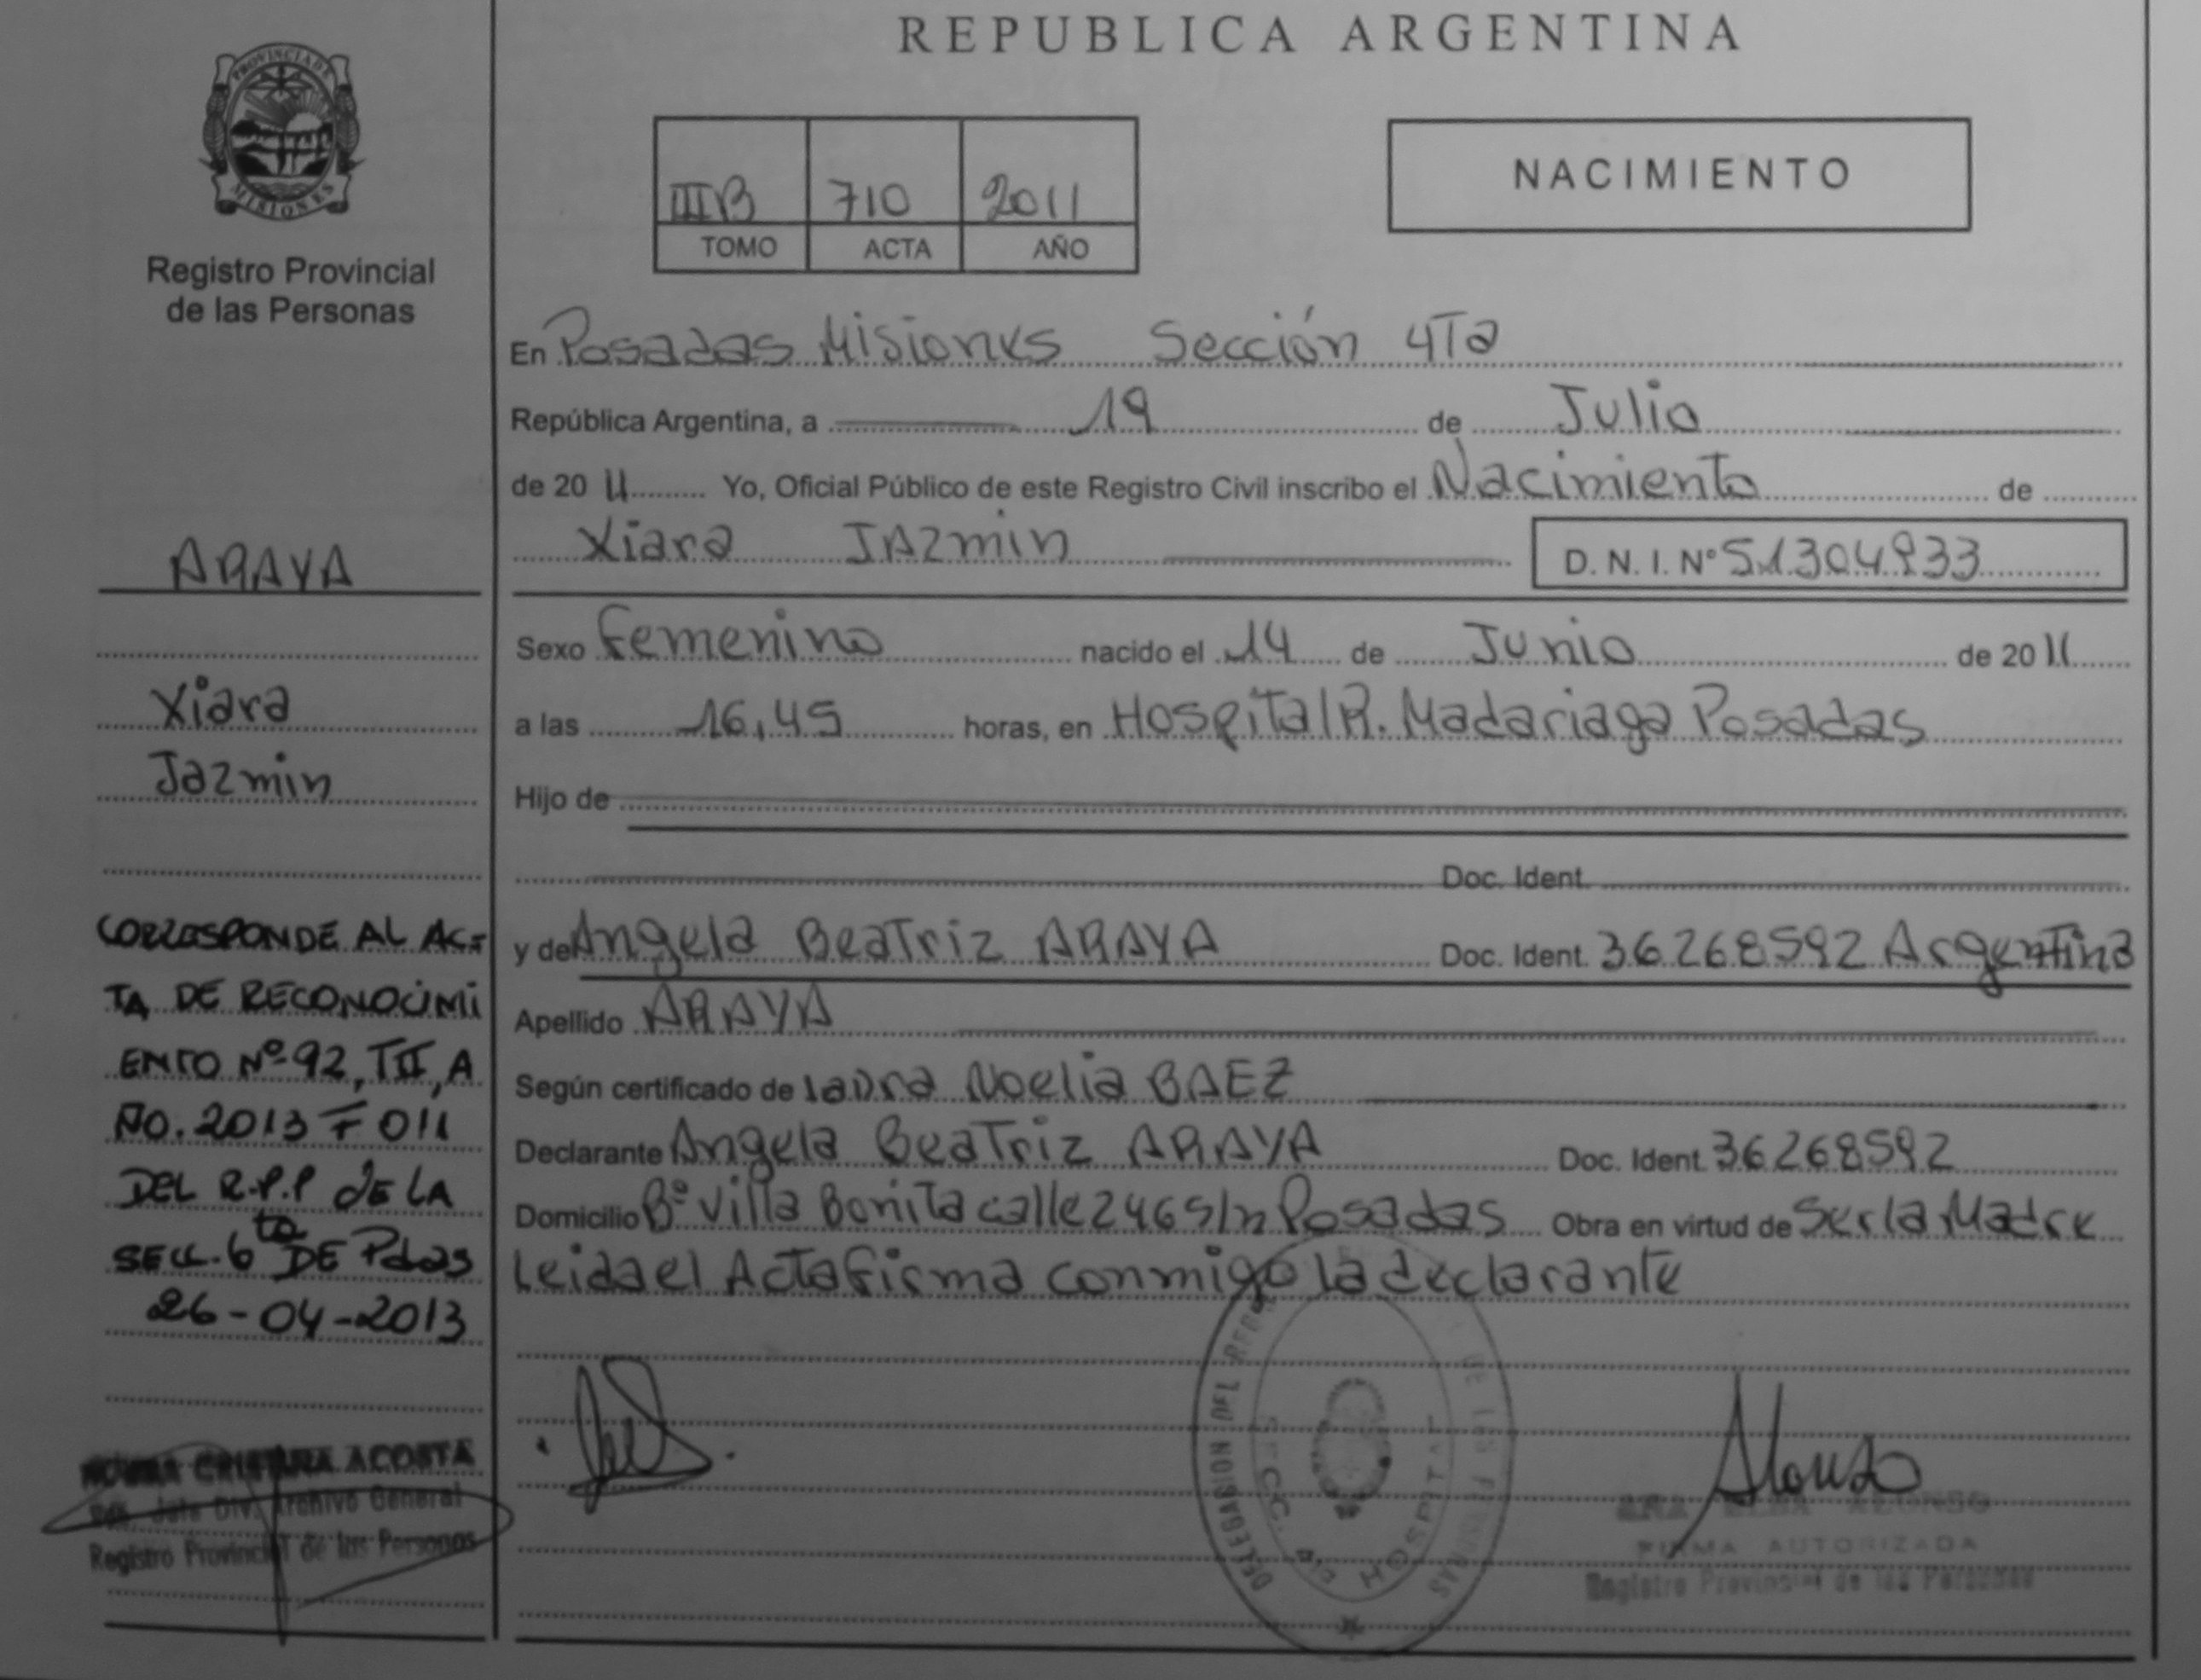 REPUBLICA ARGENTINA
PROVINCIA DE
MISIONES
Registro Provincial
de las Personas
IIIB 710 2011
TOMO ACTA AÑO
NACIMIENTO
En Posadas Misiones Sección 4Ta
República Argentina, a 19 de Julio
de 20 11 Yo, Oficial Público de este Registro Civil inscribo el Nacimiento de
Xiara JAzmin D. N. I. Nº 51304933
Sexo Femenino nacido el 14 de Junio de 20 11
a las 16,45 horas, en Hospital R. Madariaga Posadas
Hijo de
Doc. Ident.
y de Angela Beatriz ARAYA Doc. Ident. 36268592 Argentina
Apellido ARAYA
Según certificado de laura Noelia BAEZ
Declarante Angela Beatriz ARAYA Doc. Ident. 36268592
Domicilio Bº Villa Bonita calle 246 s/n Posadas Obra en virtud de Ser la Madre
Leida el Acta firma conmigo la declarante
ARAYA
Xiara
Jazmin
CORRESPONDE AL AC=
TA DE RECONOCIMI
ENTO Nº 92, TII, A
ÑO. 2013 F 011
DEL R.P.P DE LA
SECC. 6ta DE Pdas
26-04-2013
CRISTINA ACOSTA
Jefe Div. Archivo General
Registro Provincial de las Personas
DELEGACION DEL REG. DE LAS PERSONAS
SECC. 4ta HOSPITAL
Alonso
ALONSO
FIRMA AUTORIZADA
Registro Provincial de las Personas